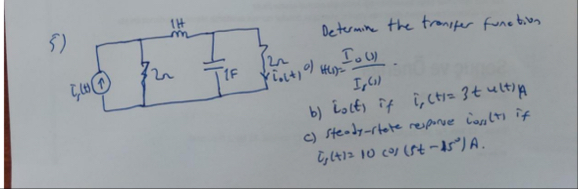 5)
1H
2Ω
1F
2Ω
io(t)
is(t)
Determine the transfer function
a) H(s) = Io(s) / Is(s) .
b) io(t) if is(t) = 3t u(t) A
c) steady-state response ioss(t) if
is(t) = 10 cos(5t - 15°) A.